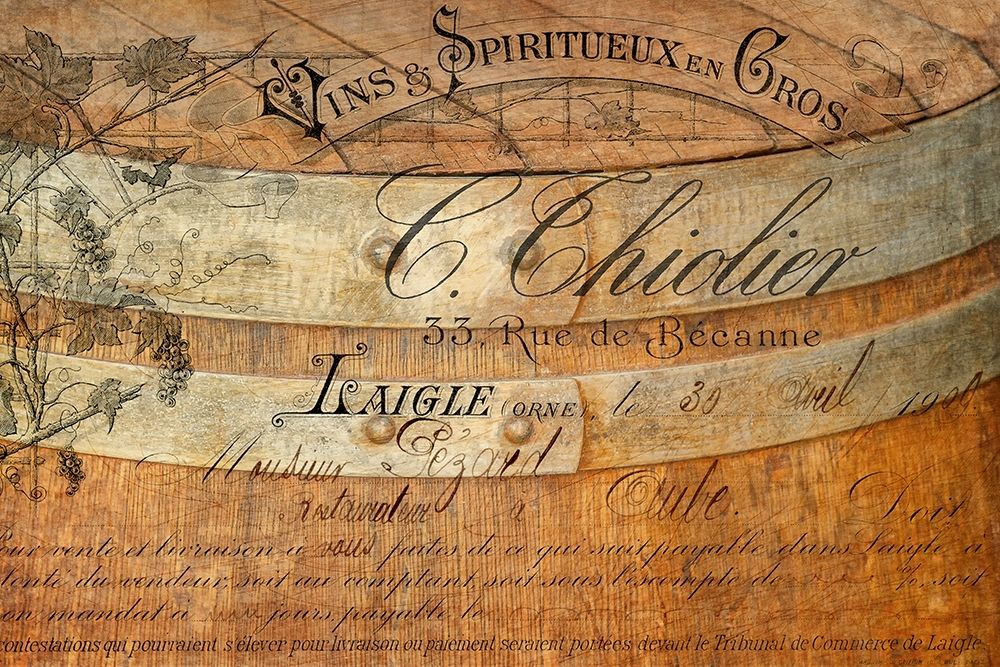 Vins & Spiritueux en Gros
C. Chiolier
33, Rue de Bécanne
Laigle (Orne), le 30 Avril 1900
Monsieur Lézard
Restaurateur à Aube. Doit
Pour vente et livraison à vous faites de ce qui suit payable dans Laigle à
tenté du vendeur soit au comptant, soit sous l'escompte de %, soit
en mandat à jours payable le
contestations qui pourraient s'élever pour livraison ou paiement seraient portées devant le Tribunal de Commerce de Laigle